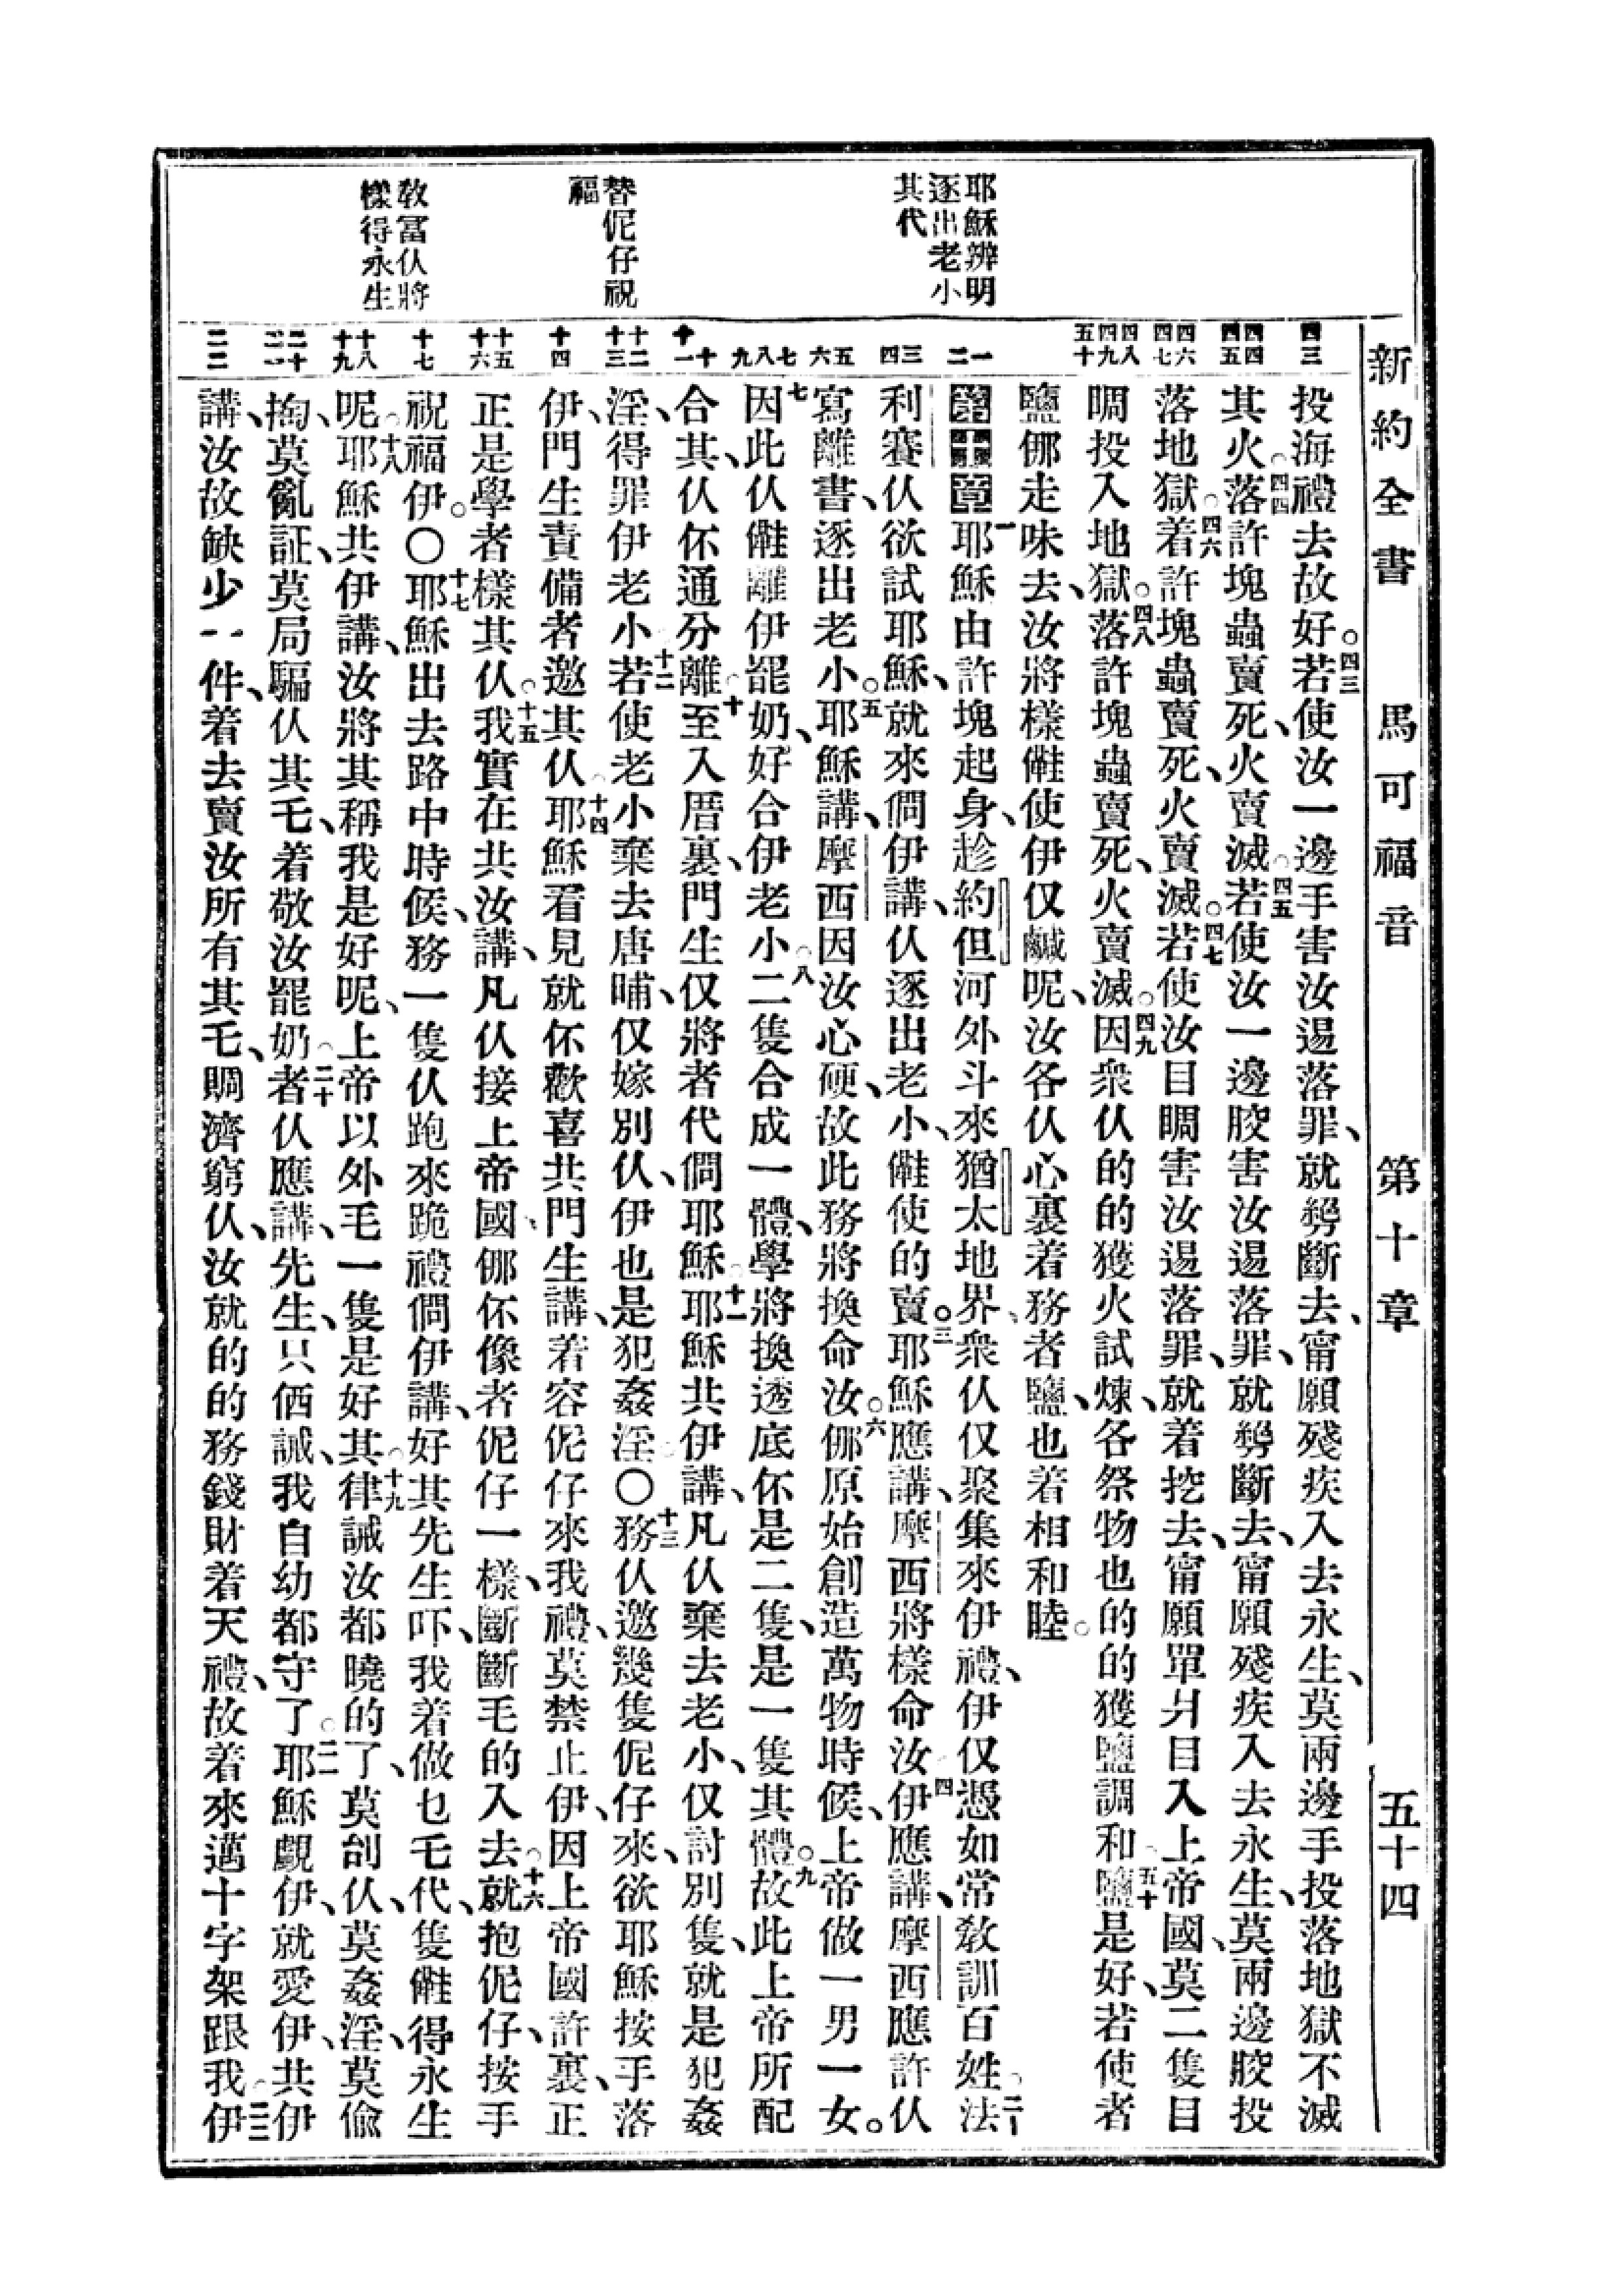 新約全書 馬可福音 第十章 五十四
耶穌辨明
逐出老小
其代
替伲仔祝
福
敎富仈將
樣得永生
四三
四四
四五
四六
四七
四八
四九
五十
一
二
三
四
五
六
七
八
九
十
十一
十二
十三
十四
十五
十六
十七
十八
十九
二十
二一
二二
投海禮去故好。四三若使汝一邊手害汝逿落罪、就剺斷去、甯願殘疾入去永生、莫兩邊手投落地獄不滅
其火。四四落許塊蟲賣死、火賣滅。四五若使汝一邊骹害汝逿落罪、就剺斷去、甯願殘疾入去永生、莫兩邊骹投
落地獄。四六着許塊蟲賣死、火賣滅。四七若使汝目睭害汝逿落罪、就着挖去、甯願單爿目入上帝國、莫二隻目
睭投入地獄。四八落許塊蟲賣死、火賣滅。四九因衆仈的的獲火試煉、各祭物也的的獲鹽調和。五十鹽是好、若使者
鹽倻走味去、汝將樣儺使伊仅鹹呢、汝各仈心裏着務者鹽、也着相和睦。
第十章一耶穌由許塊起身、趁約但河外斗來猶太地界、衆仈仅聚集來伊禮、伊仅憑如常敎訓百姓。二法
利賽仈欲試耶穌、就來倜伊講、仈逐出老小、儺使的賣。三耶穌應講、摩西將樣命汝。四伊應講、摩西應許仈
寫離書、逐出老小。五耶穌講、摩西因汝心硬、故此務將換命汝。六倻原始創造萬物時候、上帝做一男一女。
七因此仈儺離伊罷奶、好合伊老小。八二隻合成一體、學將換透底伓是二隻、是一隻其體。九故此上帝所配
合其、仈伓通分離。十至入厝裏、門生仅將者代倜耶穌。十一耶穌共伊講、凡仈棄去老小、仅討別隻、就是犯姦
淫、得罪伊老小。十二若使老小棄去唐晡、仅嫁別仈、伊也是犯姦淫。〇十三務仈邀幾隻伲仔來、欲耶穌按手落
伊、門生責備者邀其仈。十四耶穌看見就伓歡喜、共門生講、着容伲仔來我禮、莫禁止伊、因上帝國許裏、正
正是學者樣其仈。十五我實在共汝講、凡仈接上帝國、倻伓像者伲仔一樣、斷斷毛的入去。十六就抱伲仔、按手
祝福伊。〇十七耶穌出去路中時候、務一隻仈跑來跪禮倜伊講、好其先生吓、我着做乜毛代、隻儺得永生
呢。十八耶穌共伊講、汝將其稱我是好呢、上帝以外毛一隻是好其。十九律誡汝都曉的了、莫刣仈、莫姦淫、莫偸
掏、莫亂証、莫局騙仈其毛、着敬汝罷奶。二十者仈應講、先生、只倎誡、我自幼都守了。二一耶穌覷伊、就愛伊、共伊
講、汝故缺少一件、着去賣汝所有其毛、賙濟窮仈、汝就的的務錢財着天禮、故着來邁十字架跟我。二二伊